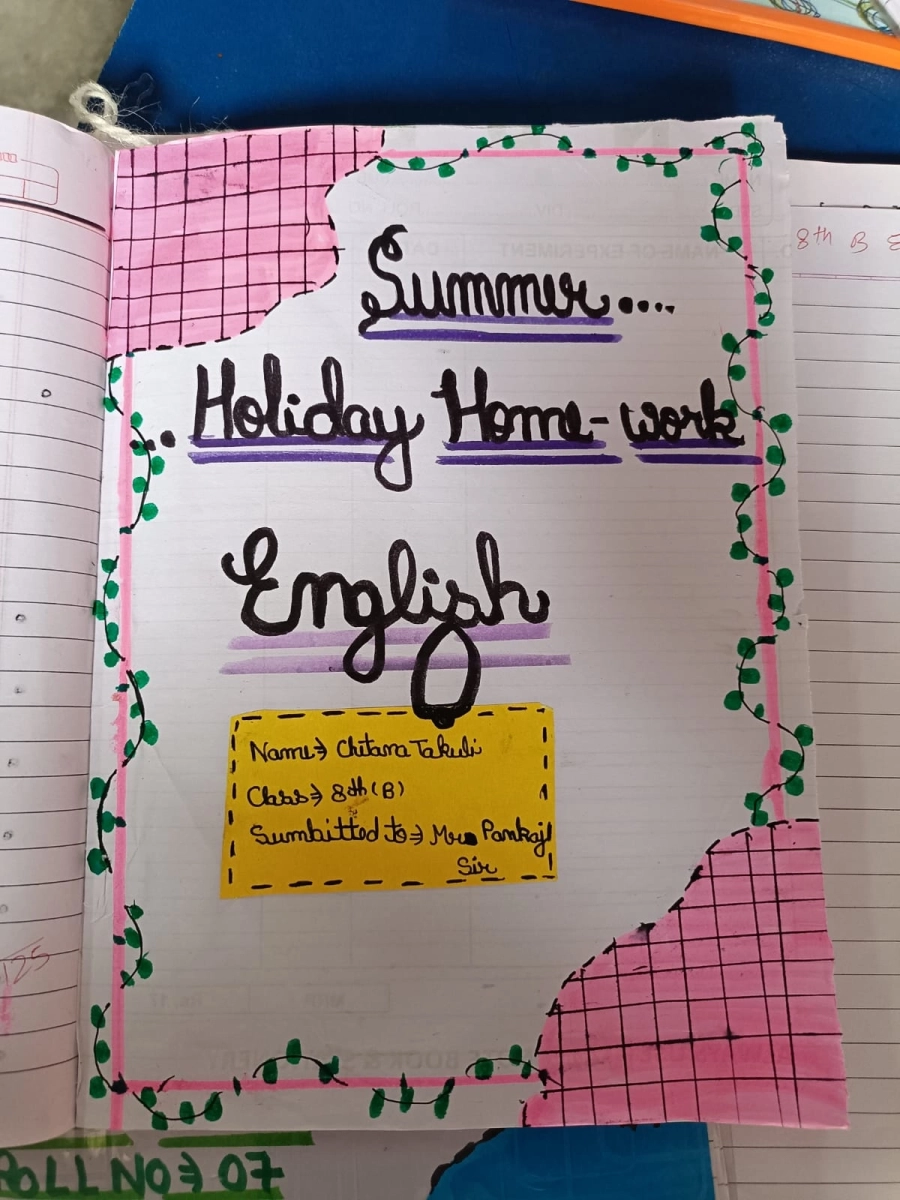 Summer....
..Holiday Home-work
English
Name⇒ Chitana Takuli
Class⇒ 8th (B)
Sumbitted to⇒ Mr. Pankaj
Sir
8th B
125
ROLL NO⇒ 07